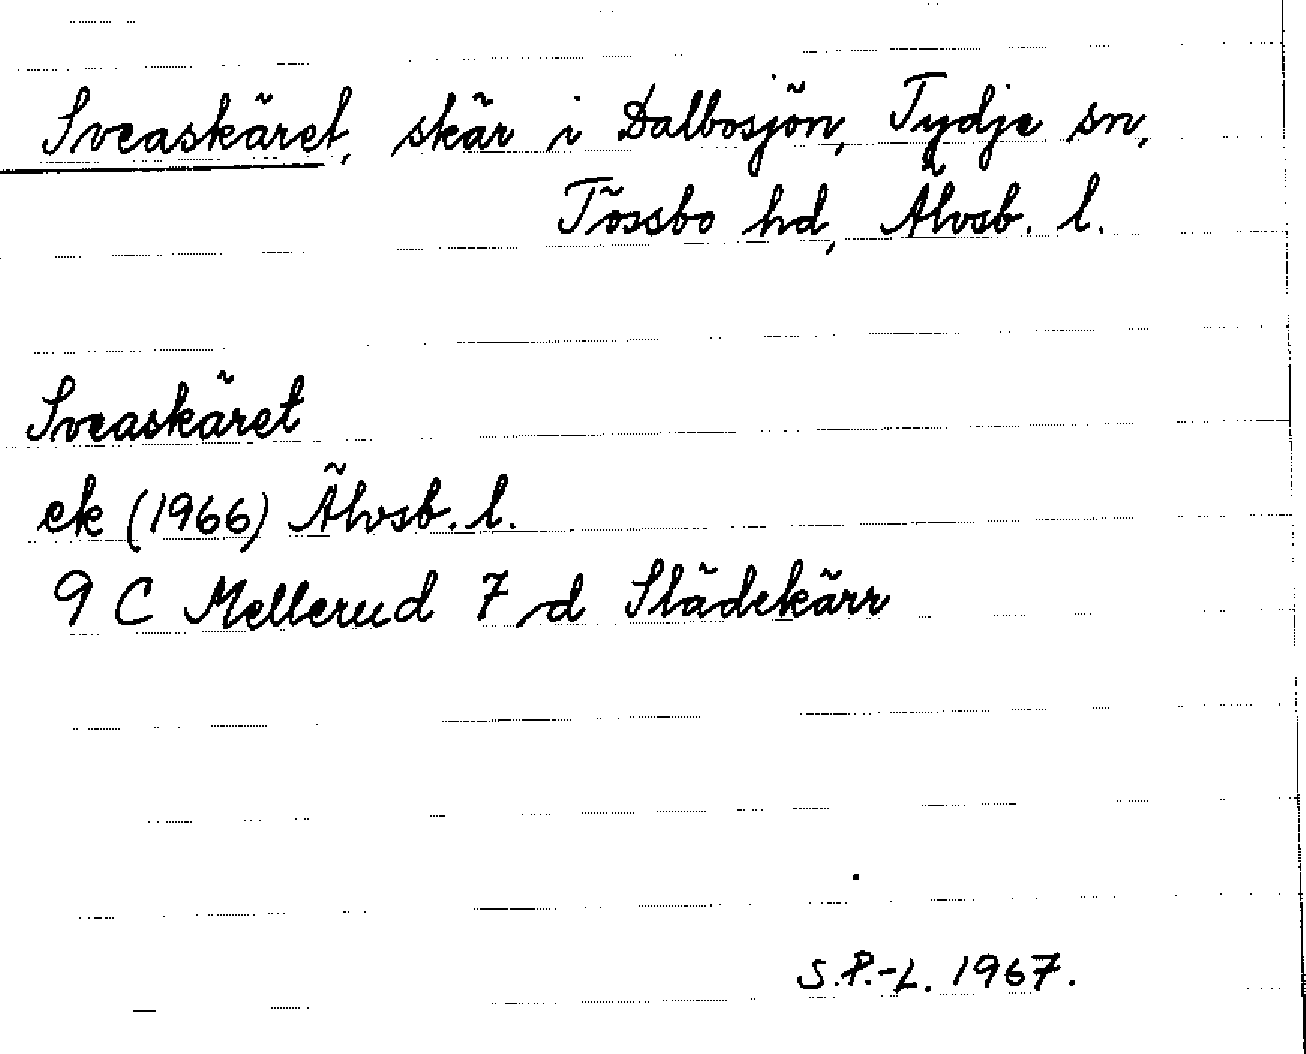 Sveaskäret, skär i Dalbosjön, Tydje sn,
Tössbo hd, Älvsb. l.
Sveaskäret
ek (1966) Älvsb. l.
9 C Mellerud 7 d Slädekärr
S.P.-L. 1967.